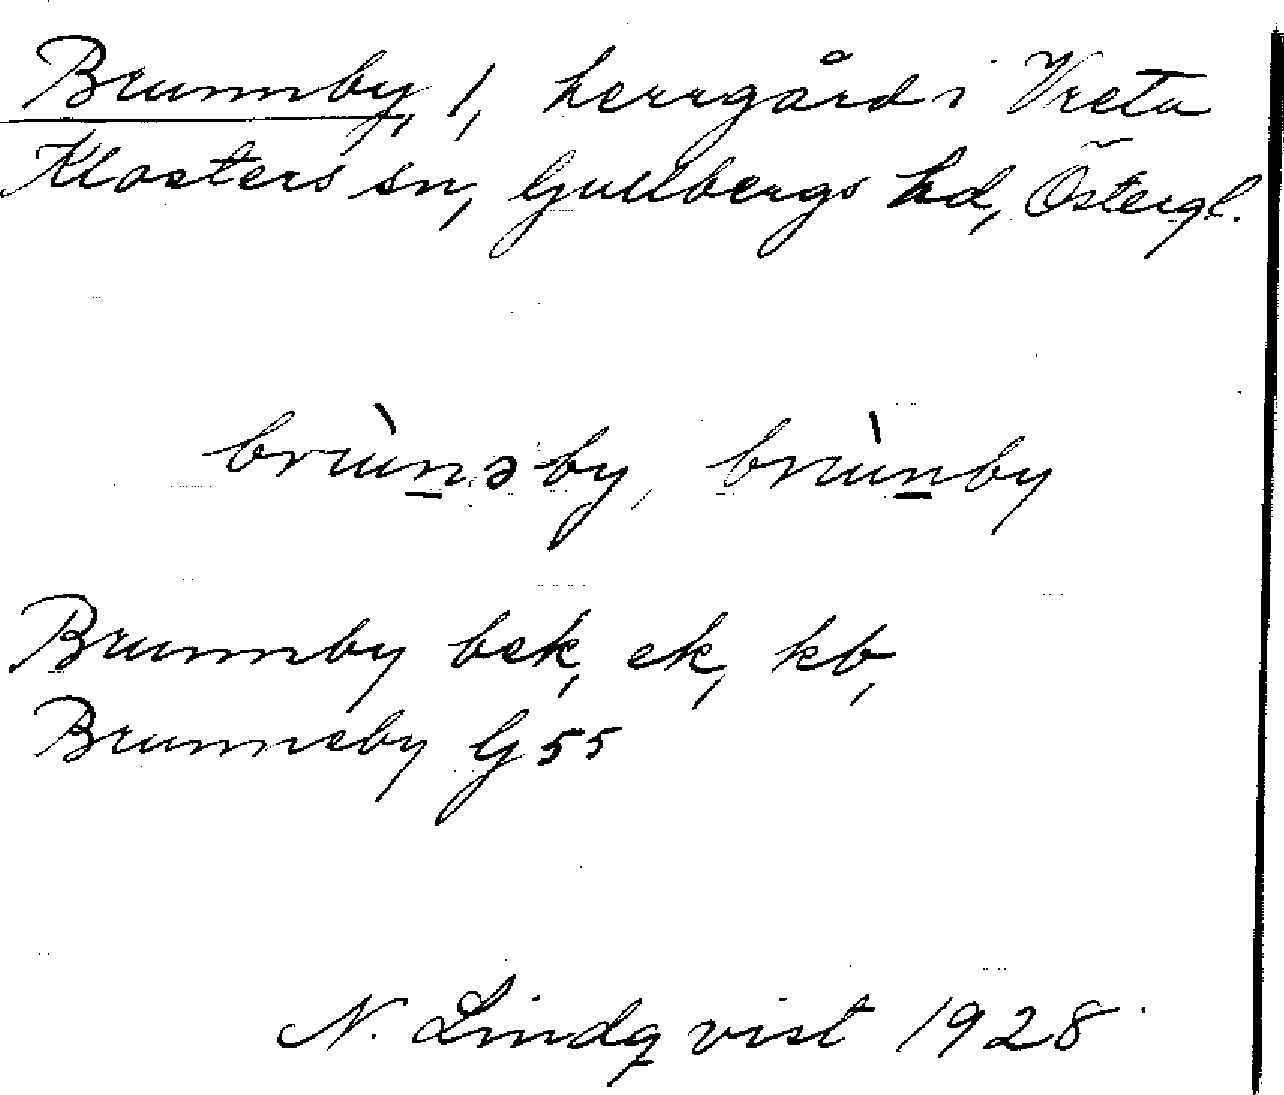 Brunnby, 1, herrgård i Vreta
Klosters sn, Gullbergs hd, Östergl.
brùn̲əby, brùn̲by
Brunnby bek, ek, kb,
Brunneby G 55
N. Lindqvist 1928